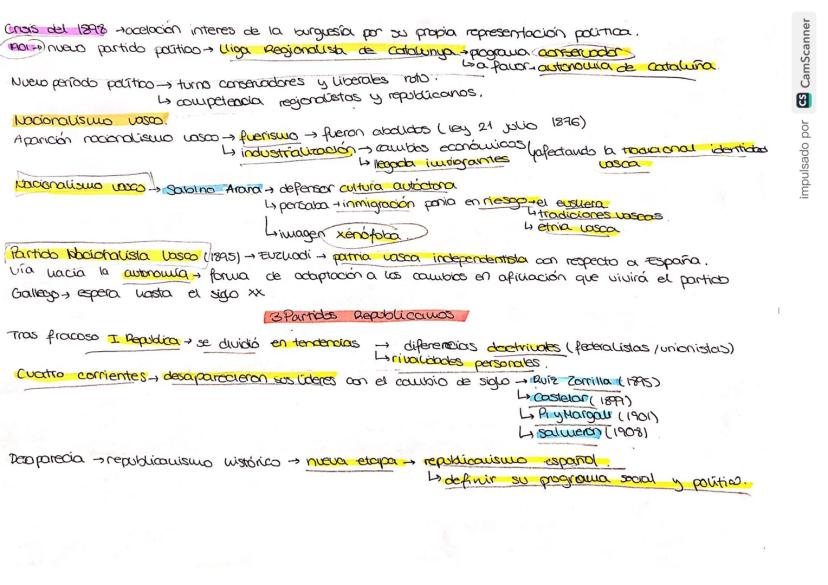 Crisis del 1898 → acelación interes de la burguesía por su propia representación política.
1901 → nuevo partido político → lliga Regionalista de Catalunya → programa conservador
↳ a favor autonomía de Cataluña.
Nuevo período político → turno conservadores y liberales roto.
↳ competencia regionalistas y republicanos.
Nacionalismo vasco.
Aparición nacionalismo vasco → fuerismo → fueron abolidos (ley 21 julio 1876)
↳ industrialización → cambios económicos (afectando la tradicional identidad
↳ llegada inmigrantes vasca
Nacionalismo vasco → Sabino Arana → defensor cultura autóctona
↳ pensaba → inmigración ponía en riesgo → el euskera
↳ tradiciones vascas
↳ etnia vasca
↳ imagen xenófoba
Partido Nacionalista Vasco (1895) → Euzkadi → patria vasca independentista con respecto a España.
Vía hacia la autonomía → forma de adaptación a los cambios en afiliación que vivirá el partido
Gallego → espera hasta el siglo XX
3 Partidos Republicanos
Tras fracaso I República → se dividió en tendencias → diferencias doctrinales (federalistas/unionistas)
↳ rivalidades personales.
Cuatro corrientes → desaparecieron sus líderes con el cambio de siglo → Ruiz Zorrilla (1895)
↳ Castelar (1899)
↳ Pi y Margall (1901)
↳ Salmerón (1908)
Desaparecía → republicanismo histórico → nueva etapa → republicanismo español.
↳ definir su programa social y político.
impulsado por CS CamScanner